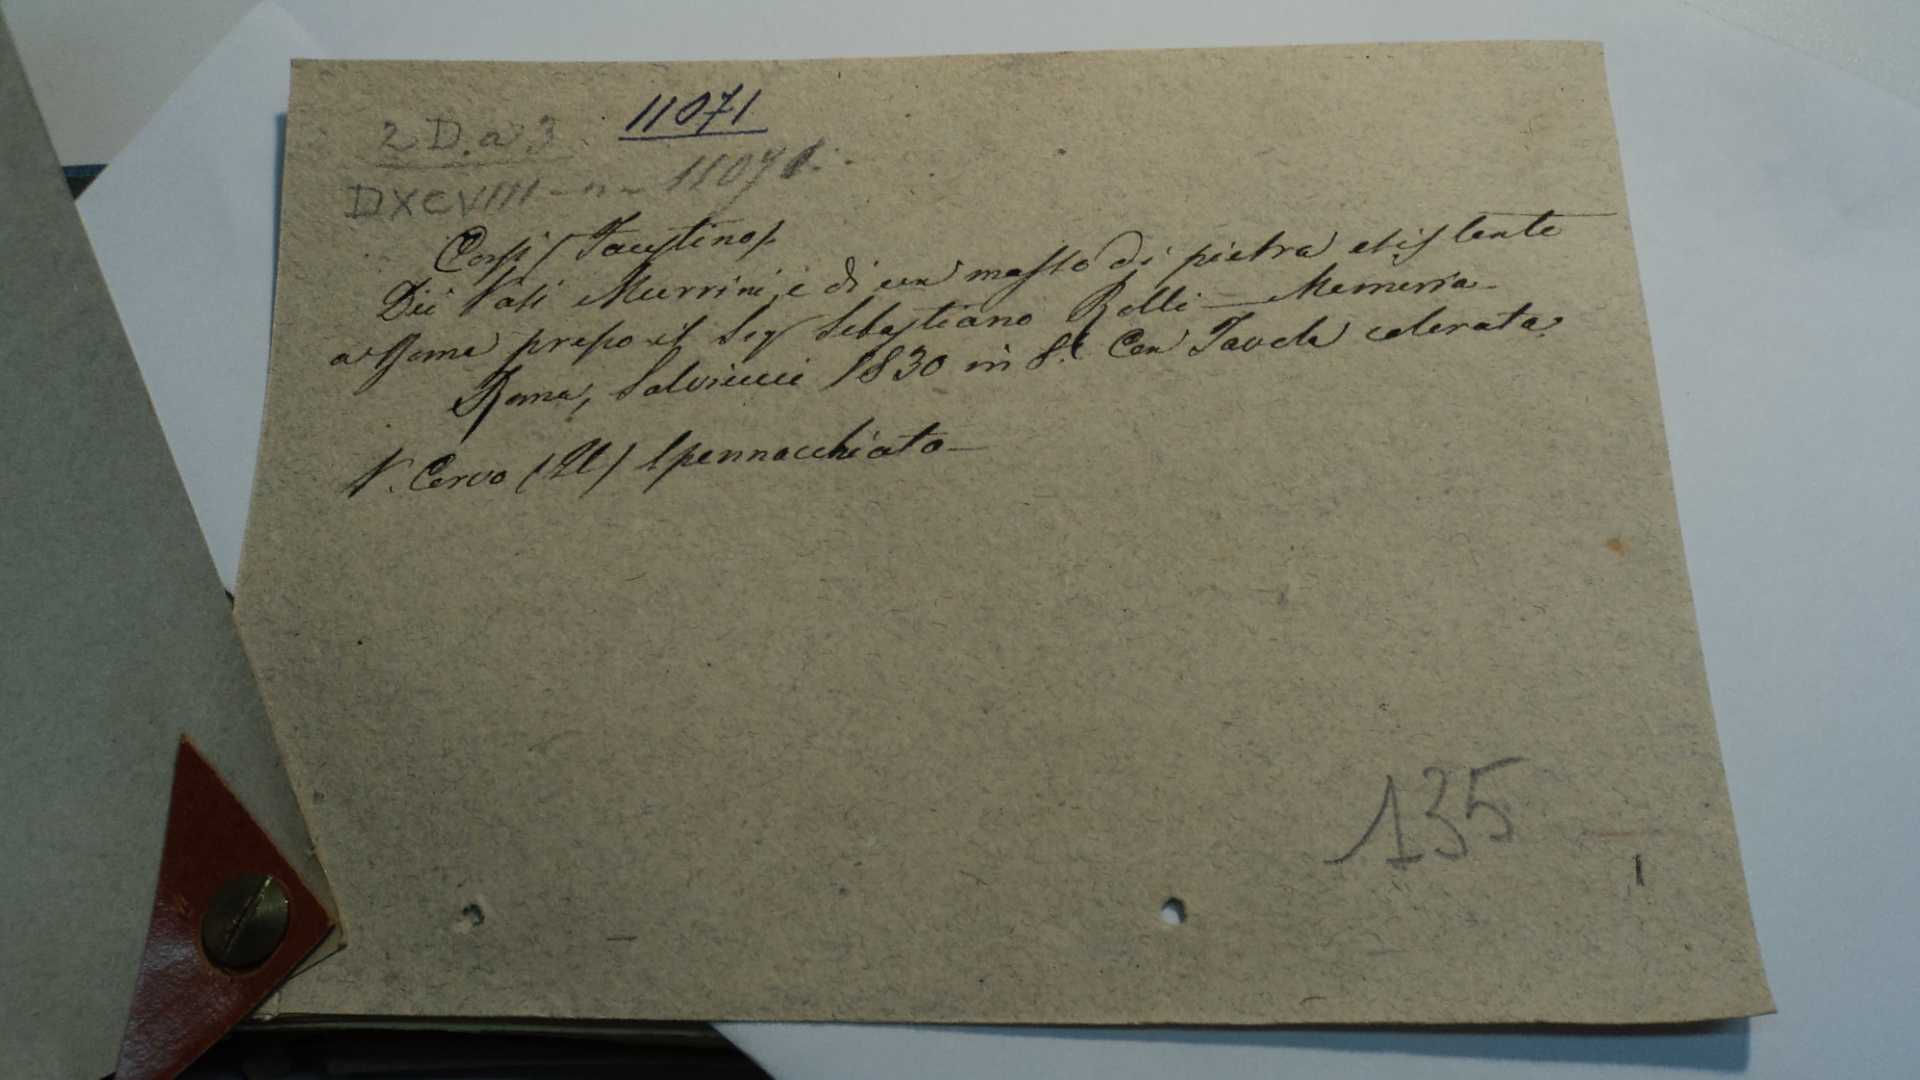 2 D. a 3 11071
DXCVIII - n - 11071.
Corsi (Faustino).
Dei Vasi Murrini, e di un masso di pietra esistente
a Roma presso il Sig Sebastiano Rolli - Memoria -
Roma, Salviucci 1830 in 8.º Con Tavola colorata.
V. Cervo (Il) Spennacchiato -
135
1